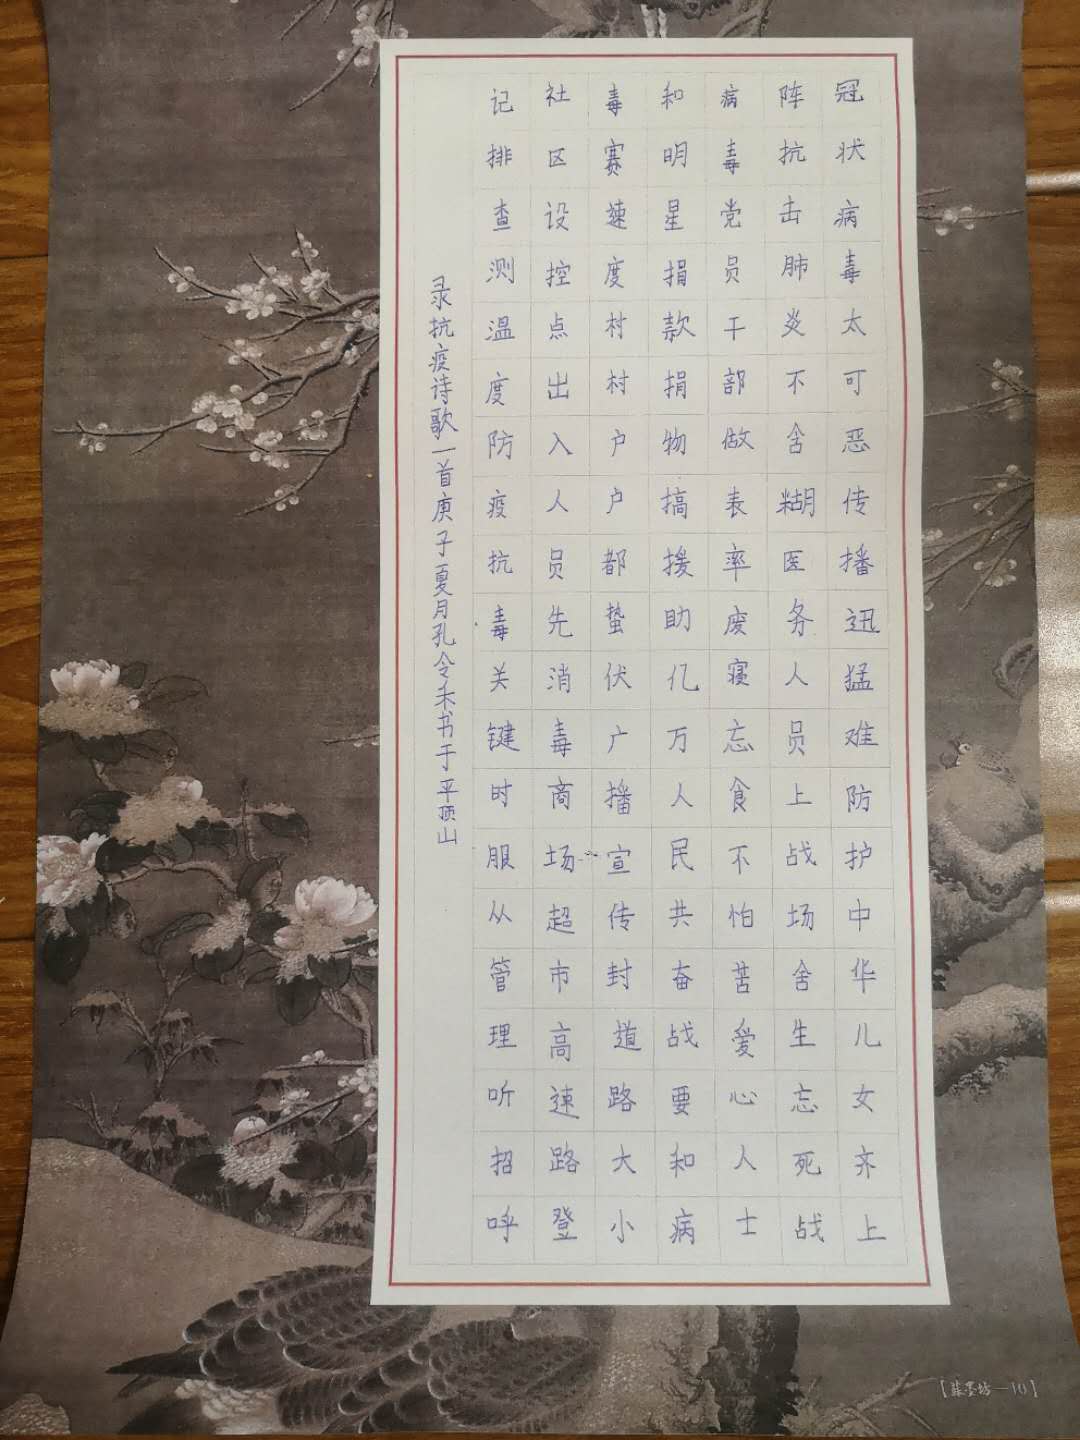 冠状病毒太可恶传播迅猛难防护中华儿女齐上
阵抗击肺炎不含糊医务人员上战场舍生忘死战
病毒党员干部做表率废寝忘食不怕苦爱心人士
和明星捐款捐物搞援助亿万人民共奋战要和病
毒赛速度村村户户都蛰伏广播宣传封道路大小
社区设控点出入人员先消毒商场超市高速路登
记排查测温度防疫抗毒关键时服从管理听招呼
录抗疫诗歌一首庚子夏月孔令禾书于平顶山